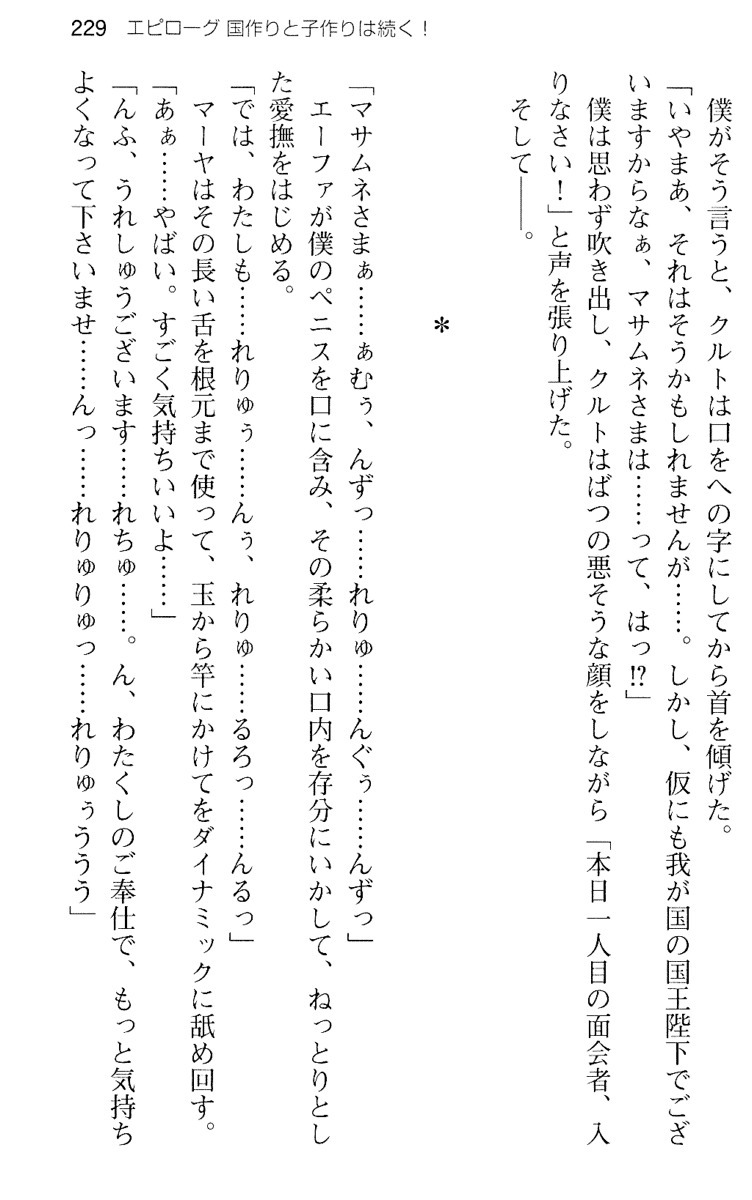 229 エピローグ 国作りと子作りは続く！
僕がそう言うと、クルトは口をへの字にしてから首を傾げた。
「いやまあ、それはそうかもしれませんが……。しかし、仮にも我が国の国王陛下でござ
いますからなぁ、マサムネさまは……って、はっ!?」
僕は思わず吹き出し、クルトはばつの悪そうな顔をしながら「本日一人目の面会者、入
りなさい！」と声を張り上げた。
そして――。
＊
「マサムネさまぁ……ぁむぅ、んずっ……れりゅ……んぐぅ……んずっ」
エーファが僕のペニスを口に含み、その柔らかい口内を存分にいかして、ねっとりとし
た愛撫をはじめる。
「では、わたしも……れりゅぅ……んぅ、れりゅ……るろっ……んるっ」
マーヤはその長い舌を根元まで使って、玉から竿にかけてをダイナミックに舐め回す。
「あぁ……やばい。すごく気持ちいいよ……」
「んふ、うれしゅうございます……れちゅ……。ん、わたくしのご奉仕で、もっと気持ち
よくなって下さいませ……んっ……れりゅりゅっ……れりゅぅううう」